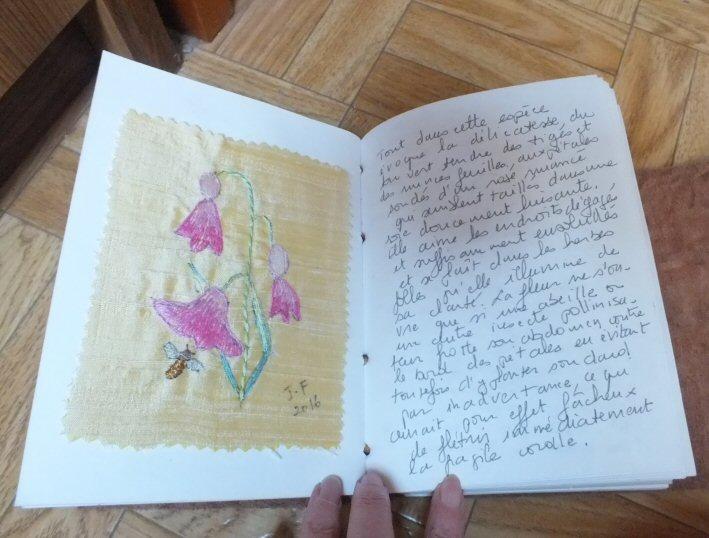 J.F
2016
Tout dans cette espèce
évoque la délicatesse, du
fin vert tendre des tiges et
des minces feuilles, aux pétales
soudés d'un rose nuancé
qui semblent taillés dans une
soie doucement luisante.
Elle aime les endroits dégagés
et suffisamment ensoleillés
et se plaît dans les herbes
folles qu'elle illumine de
sa clarté. La fleur ne s'ou-
vre que si une abeille ou
un autre insecte pollinisa-
teur frotte son abdomen contre
le bord des pétales en évitant
toutefois d'y planter son dard
par inadvertance, ce qui
aurait pour effet fâcheux
de flétrir immédiatement
la fragile corolle.